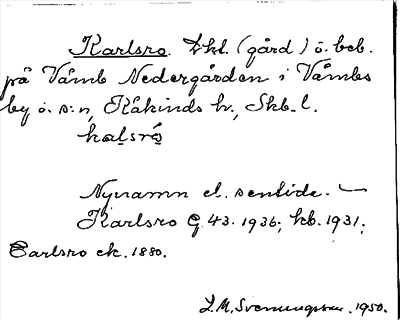 Karlsro lht. (gård) o. beb.
på Våmb Nedergården i Våmbs
by o. s:n, Kåkinds hr, Skb. l.
kalsrọ̄
Nynamn el. sentida. –
Karlsro G. 43. 1936; kb. 1931;
Carlsro ek. 1880.
S.M. Svenungsson. 1950.